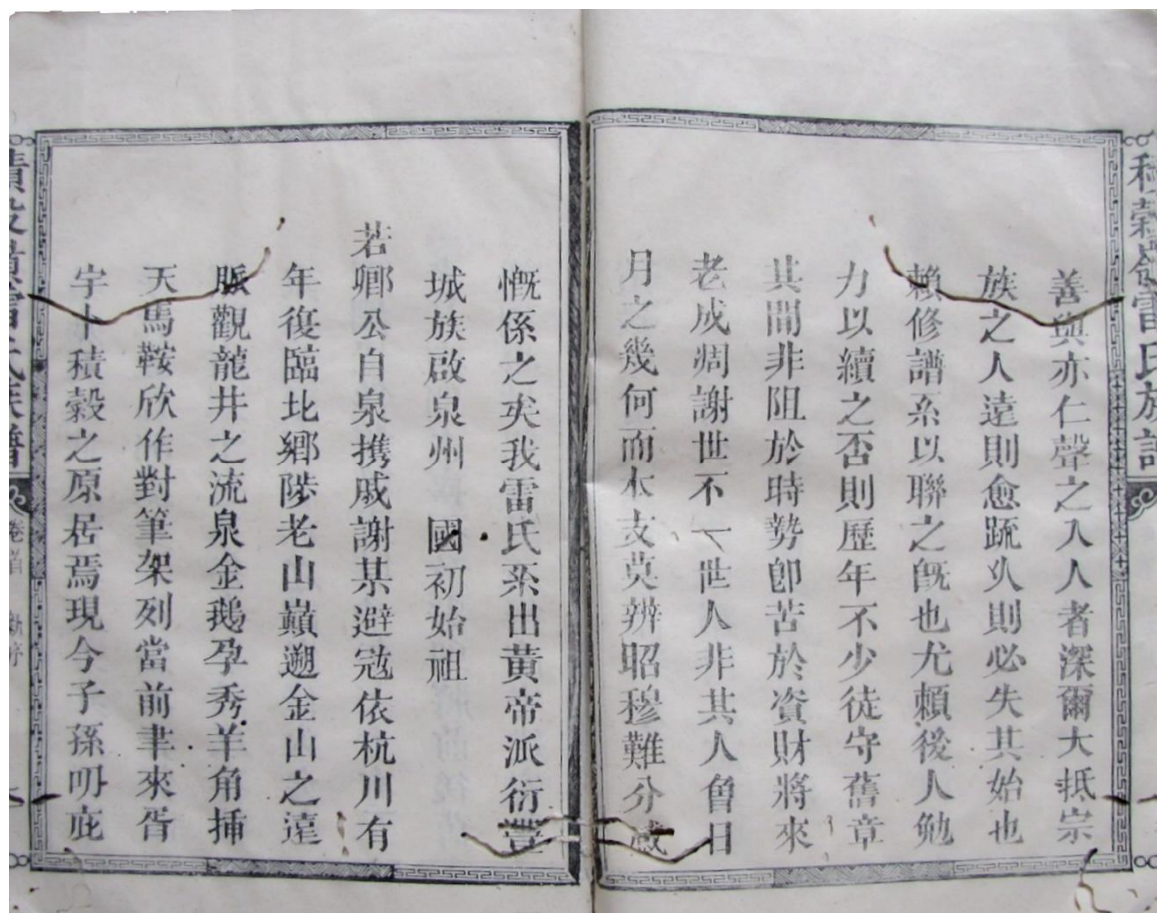 善與亦仁聲之入人者深爾大抵宗
族之人遠則愈疏久則必失其始也
賴修譜系以聯之旣也尤賴後人勉
力以續之否則歷年不少徒守舊章
其間非阻於時勢卽苦於資財將來
老成凋謝世不一世人非其人曾日
月之幾何而本支莫辨昭穆難分感
慨係之矣我雷氏系出黃帝派衍豐
城族啟泉州國初始祖
若卿公自泉携戚謝某避冦依杭川有
年復臨北鄉陟老山巔遡金山之遠
脈觀龍井之流泉金鵝孕秀羊角挿
天馬鞍欣作對筆架列當前聿來胥
宇卜積穀之原居焉現今子孫叨庇
雷氏族譜
卷首